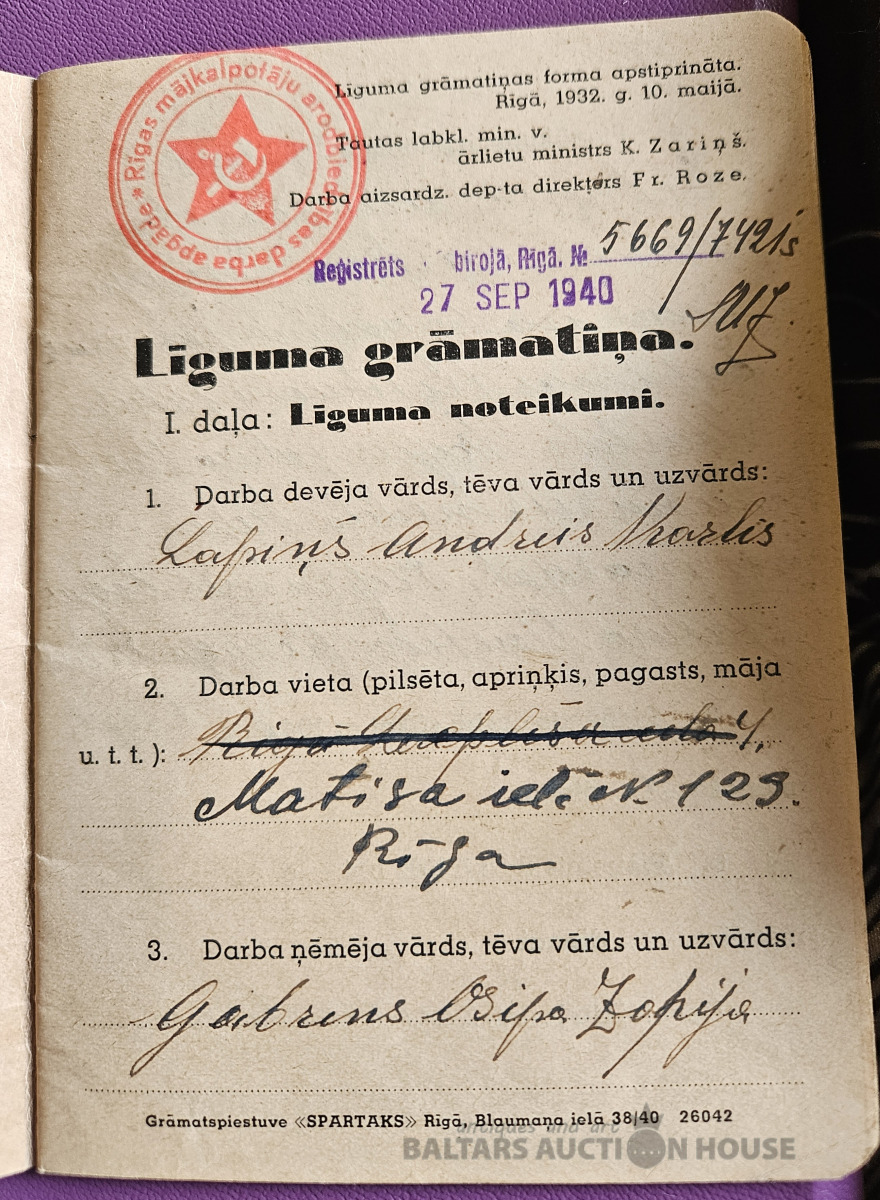 Rīgas mājkalpotāju arodbiedrības darba apgāde *
Līguma grāmatiņas forma apstiprināta.
Rīgā, 1932. g. 10. maijā.
Tautas labkl. min. v.
ārlietu ministrs K. Zariņš.
Darba aizsardz. dep-ta direktors Fr. Roze.
Reģistrēts birojā, Rīgā. № 5669/7421
27 SEP 1940
Līguma grāmatiņa.
I. daļa: Līguma noteikumi.
1. Darba devēja vārds, tēva vārds un uzvārds:
Lapiņš Andreis
2. Darba vieta (pilsēta, apriņķis, pagasts, māja
u. t. t.): Rīgā iela 4,
Matīsa iela N. 129.
Rīga
3. Darba ņēmēja vārds, tēva vārds un uzvārds:
Gabrens Osipa Zofija
Grāmatspiestuve «SPARTAKS» Rīgā, Blaumaņa ielā 38/40 26042
antiques and art
BALTARS AUCTION HOUSE